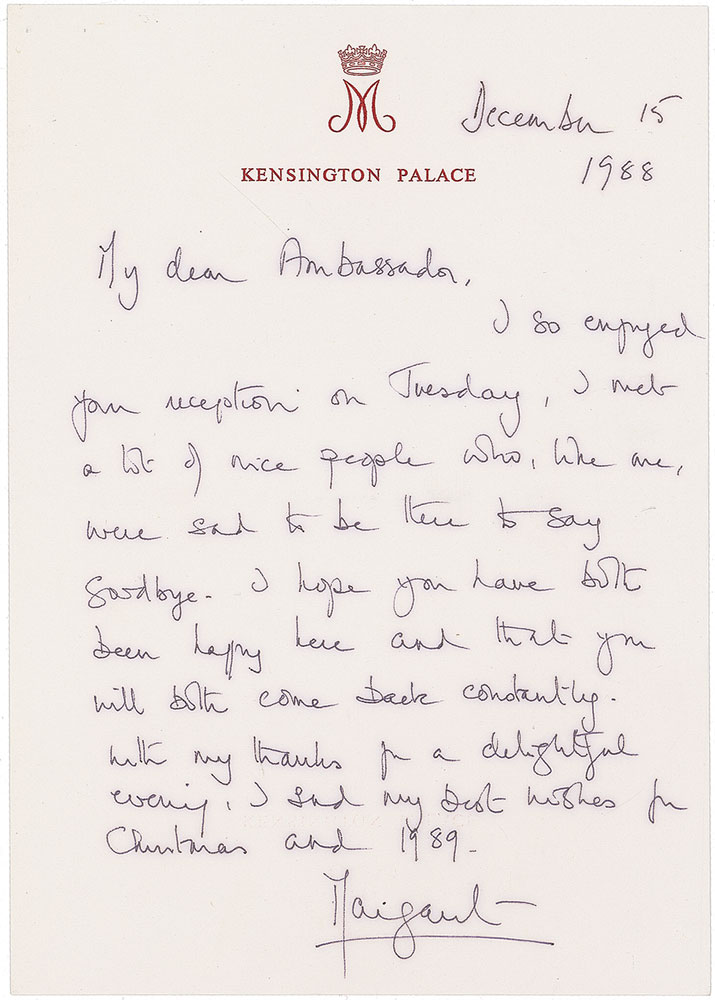 M
December 15
KENSINGTON PALACE
1988
My dear Ambassador,
I so enjoyed
your reception on Tuesday, I met
a lot of nice people who, like me,
were sad to be there to say
goodbye. I hope you have both
been happy here and that you
will both come back constantly.
With my thanks for a delightful
evening, I send my best wishes for
Christmas and 1989.
Margaret